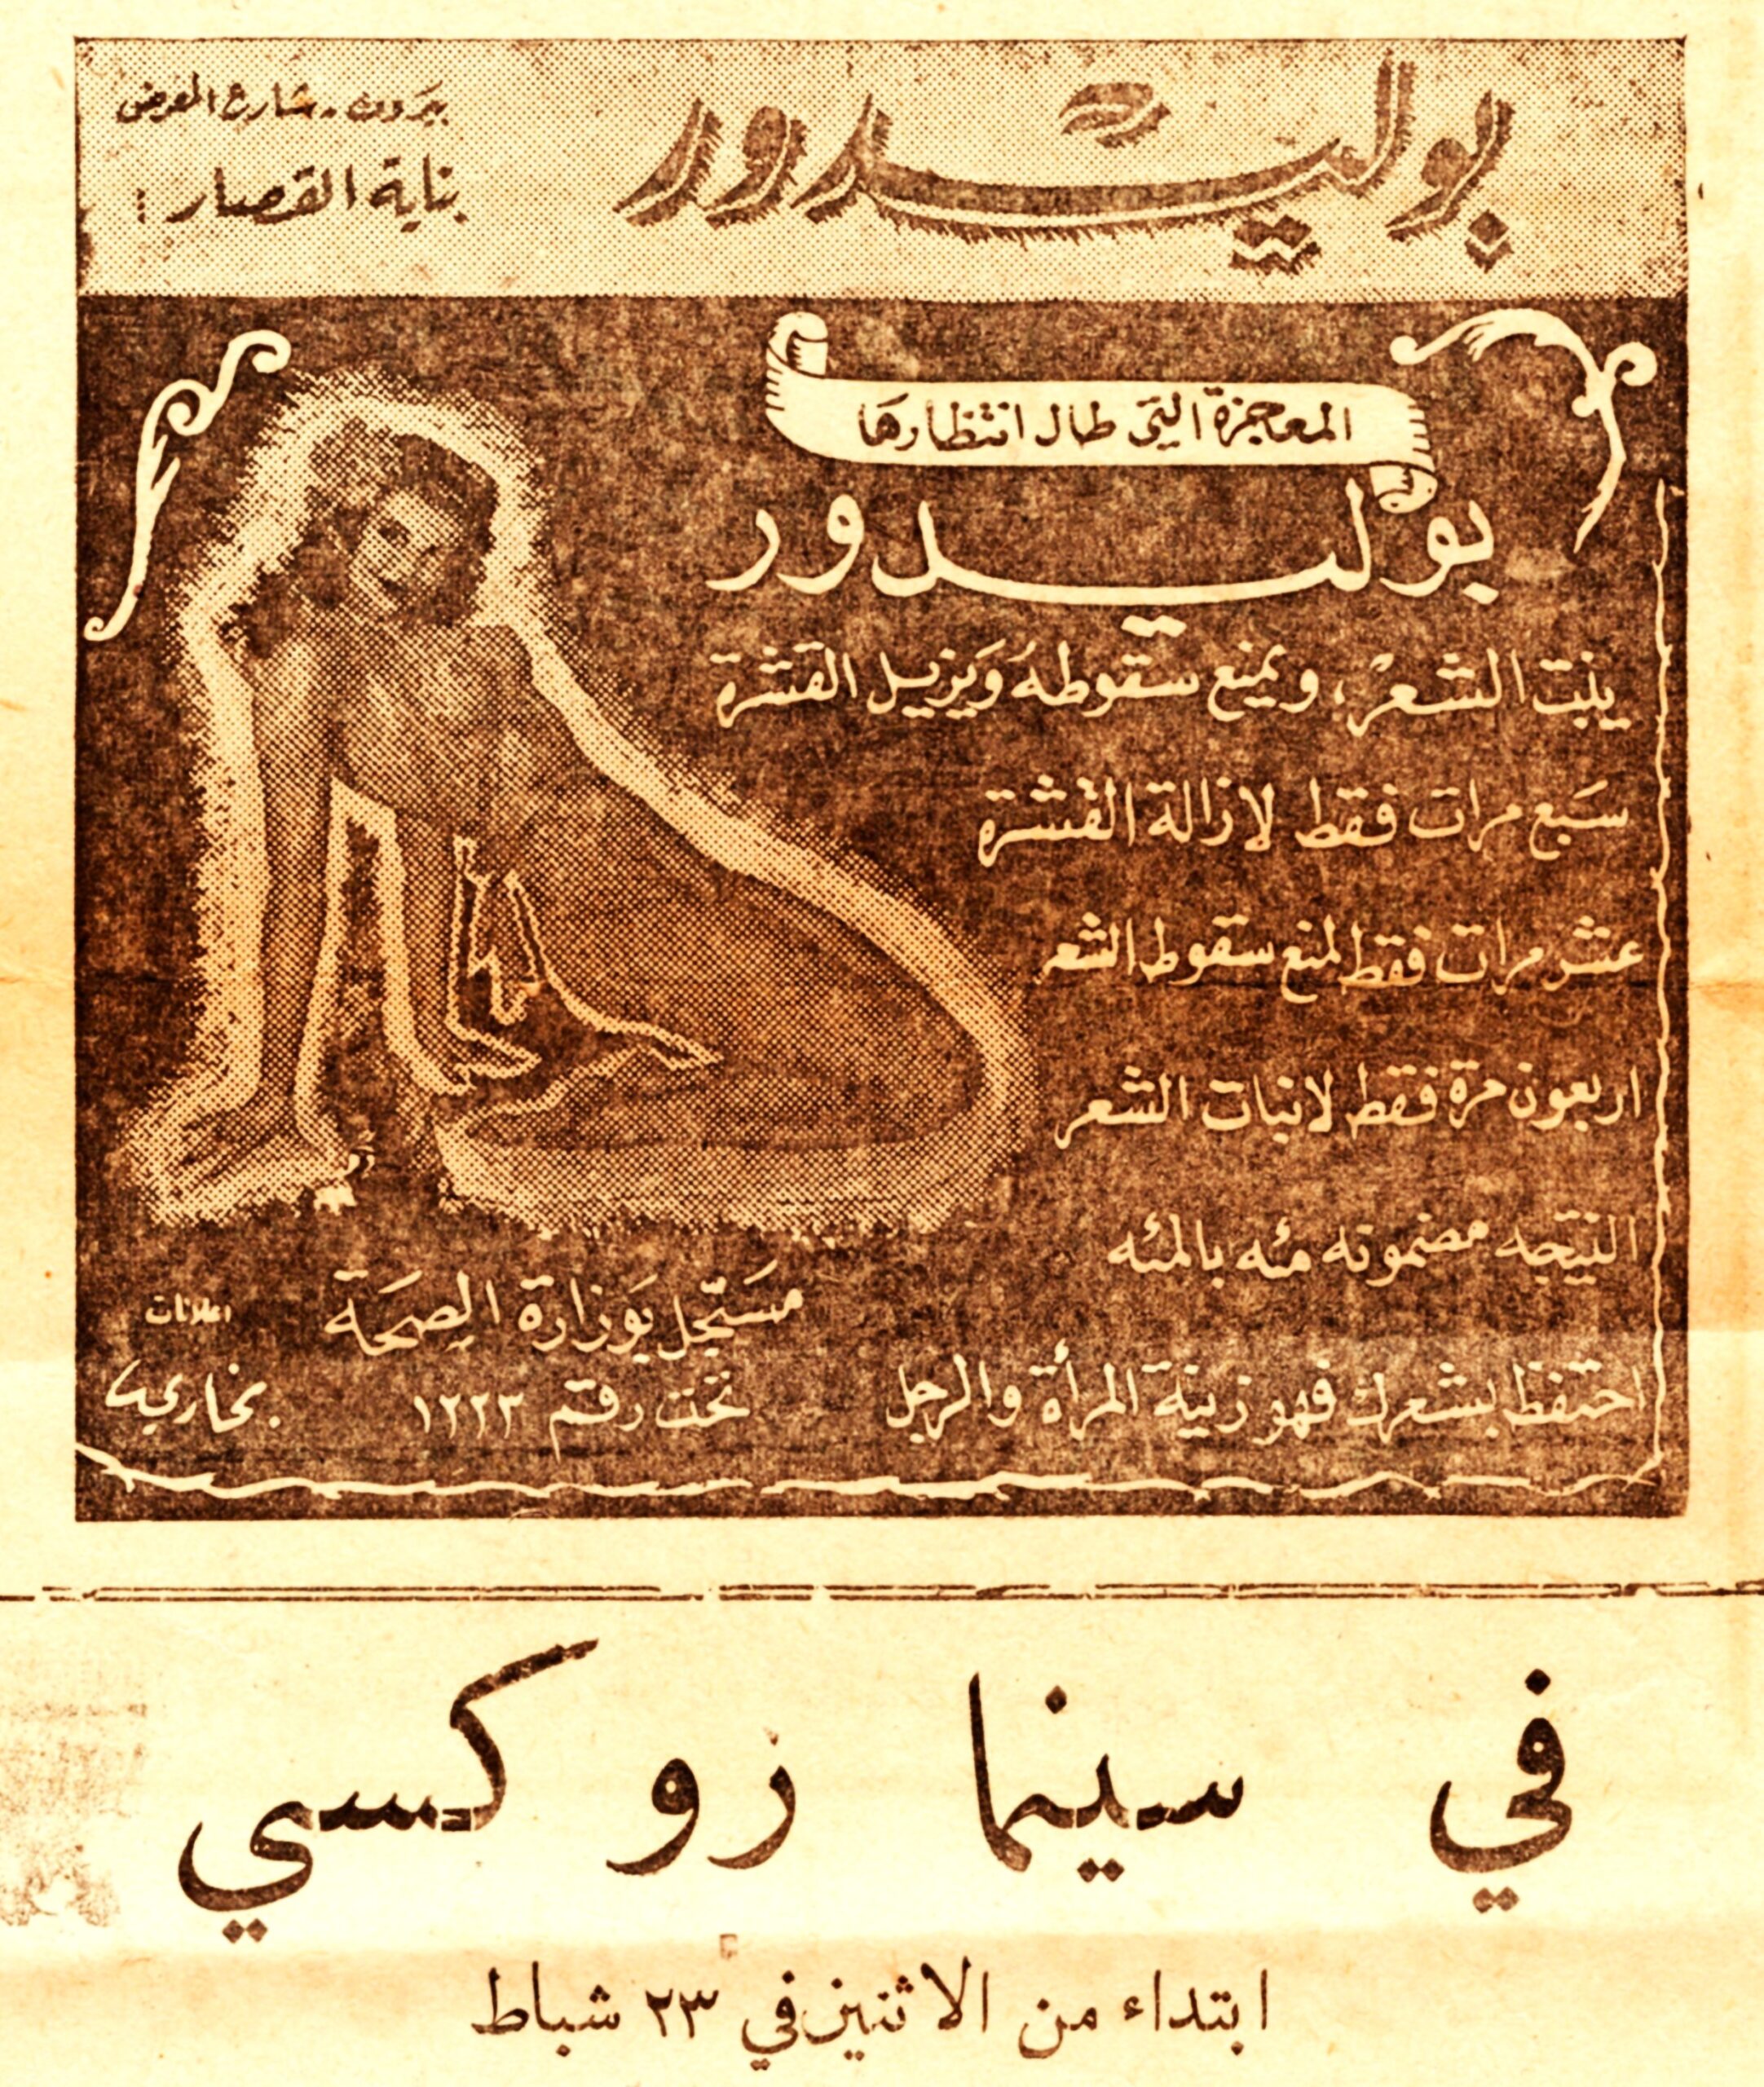 شركة بوليدور
بيروت - شارع المعرض
بناية القصار :
المعجزة التي طال انتظارها
بوليدور
ينبت الشعر، ويمنع سقوطه ويزيل القشرة
سبع مرات فقط لازالة القشرة
عشر مرات فقط لمنع سقوط الشعر
اربعون مرة فقط لانبات الشعر
النتيجه مضمونه مئه بالمئه
احتفظ بشعرك فهو زينة المرأة والرجل
مسجل بوزارة الصحة
تحت رقم ١٢٢٣
اعلانات
بخاري
في سينما روكسي
ابتداء من الاثنين في ٢٣ شباط